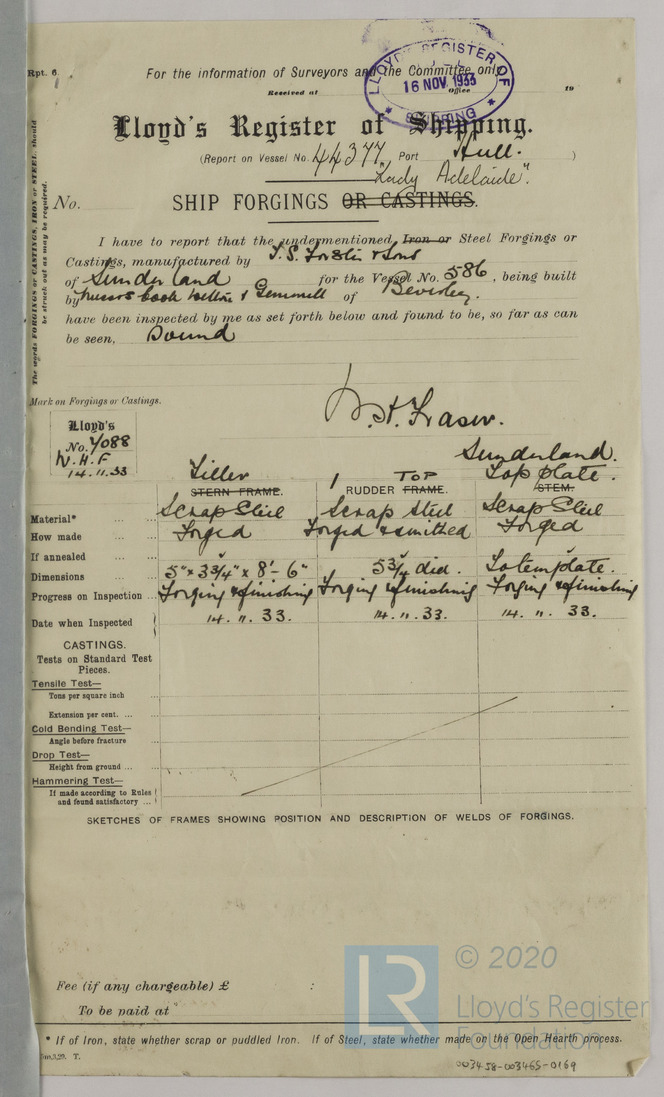 Rpt. 6.
For the information of Surveyors and the Committee only
Received at Office 19
LLOYD'S REGISTER OF SHIPPING
16 NOV 1933
Lloyd's Register of Shipping.
(Report on Vessel No. 44377 Port Hull. )
"Lady Adelaide".
No. SHIP FORGINGS OR CASTINGS.
The words FORGINGS or CASTINGS, IRON or STEEL, should
be struck out as may be required.
I have to report that the undermentioned Iron or Steel Forgings or
Castings, manufactured by T.S. Forster & Sons
of Sunderland for the Vessel No. 586, being built
by Messrs Cook Welton & Gemmell of Beverley.
have been inspected by me as set forth below and found to be, so far as can
be seen, Sound
Mark on Forgings or Castings.
W.H. Fraser.
Lloyd's
No. 4088
W.H.F
14.11.33
Sunderland.
Tiller 1 TOP Top plate.
STERN FRAME. RUDDER FRAME. STEM.
Material* ... Scrap Steel Scrap Steel Scrap Steel
How made ... Forged Forged & smithed Forged
If annealed
Dimensions ... 5" x 3¾" x 8'- 6" 5¾ dia. To template.
Progress on Inspection ... Forging & finishing Forging & finishing Forging & finishing
Date when Inspected 14.11.33. 14.11.33. 14.11.33.
CASTINGS.
Tests on Standard Test
Pieces.
Tensile Test—
Tons per square inch ...
Extension per cent. ... ...
Cold Bending Test—
Angle before fracture ...
Drop Test—
Height from ground ... ...
Hammering Test—
If made according to Rules
and found satisfactory ...
SKETCHES OF FRAMES SHOWING POSITION AND DESCRIPTION OF WELDS OF FORGINGS.
Fee (if any chargeable) £ :
To be paid at
LR
© 2020
Lloyd's Register
Foundation
* If of Iron, state whether scrap or puddled Iron. If of Steel, state whether made on the Open Hearth process.
T.
003458-003465-0169